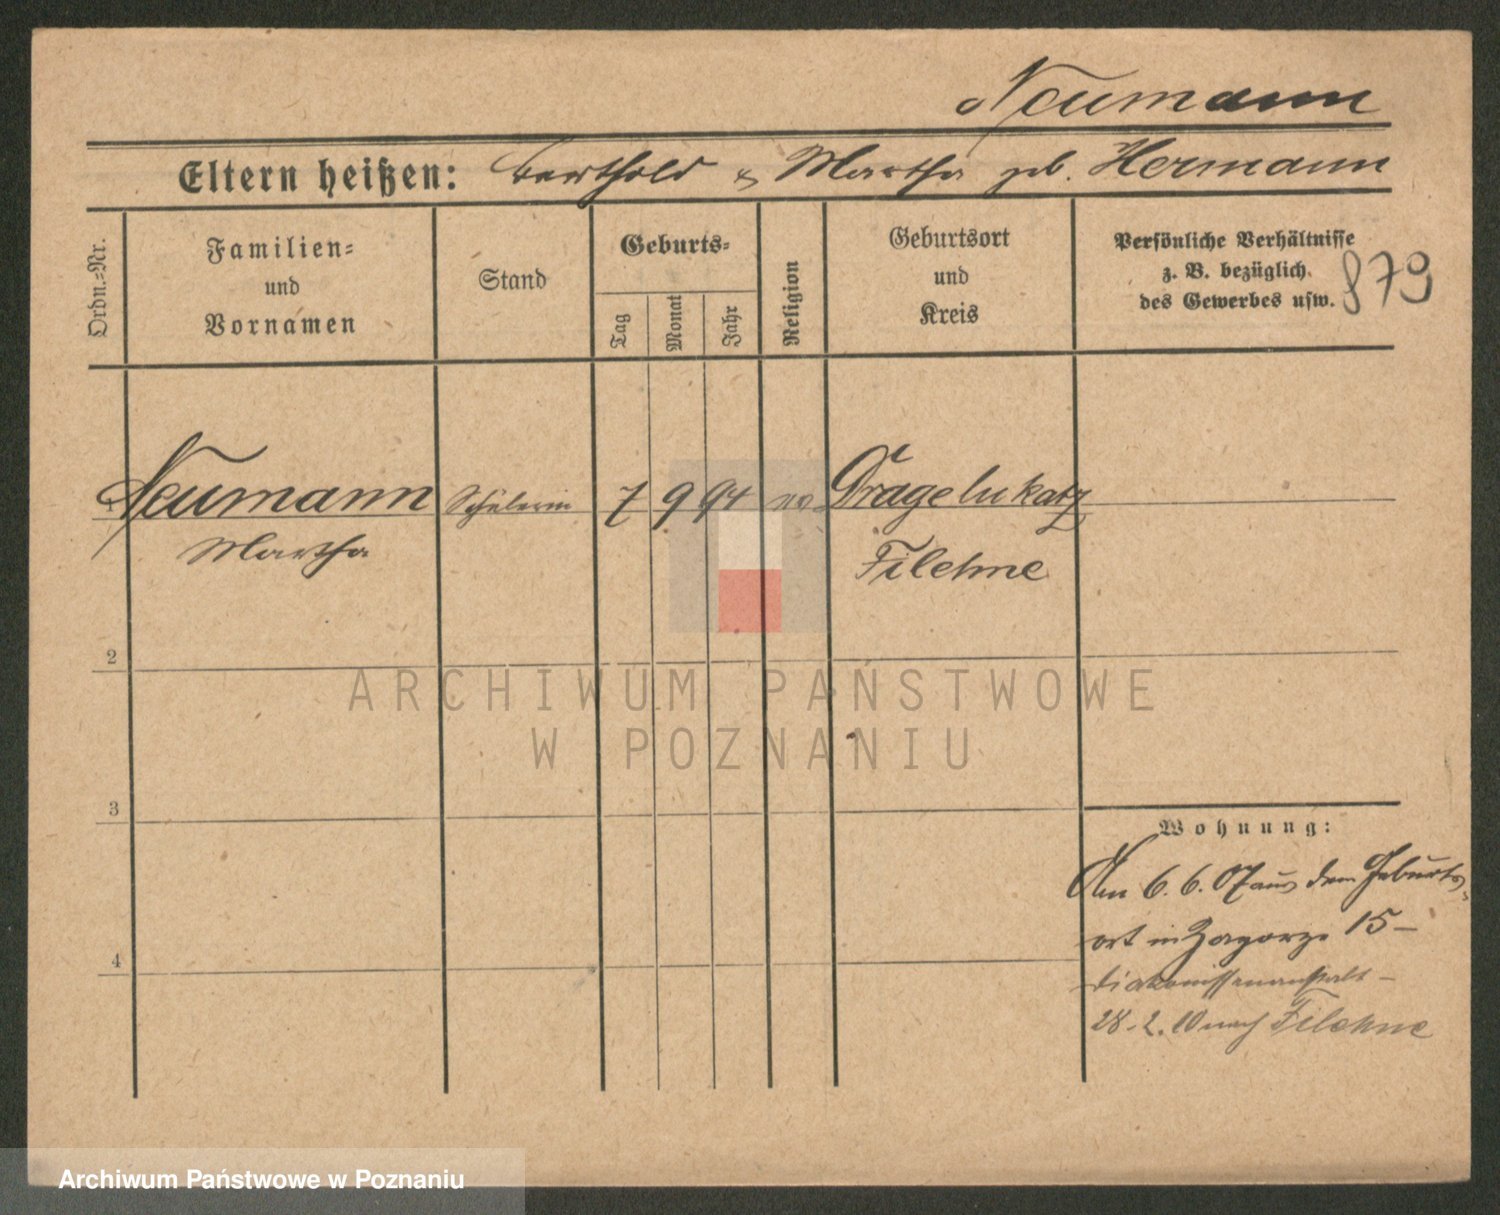 Neumann
Eltern heißen: Berthold & Martha geb. Hermann
Ordn.-Nr.
Familien-
und
Vornamen
Stand
Geburts-
Tag
Monat
Jahr
Religion
Geburtsort
und
Kreis
Persönliche Verhältnisse
z. B. bezüglich
des Gewerbes usw.
879
Neumann Schülerin 7 9 94 ev. Dragelukatz
Martha
Filehne
2
ARCHIWUM PAŃSTWOWE
W POZNANIU
3
Wohnung:
Am 6.6.07 aus dem Geburts-
ort in Zagorze 15 –
Diakonissenanstalt –
28.2.10 nach Filehne
4
Archiwum Państwowe w Poznaniu